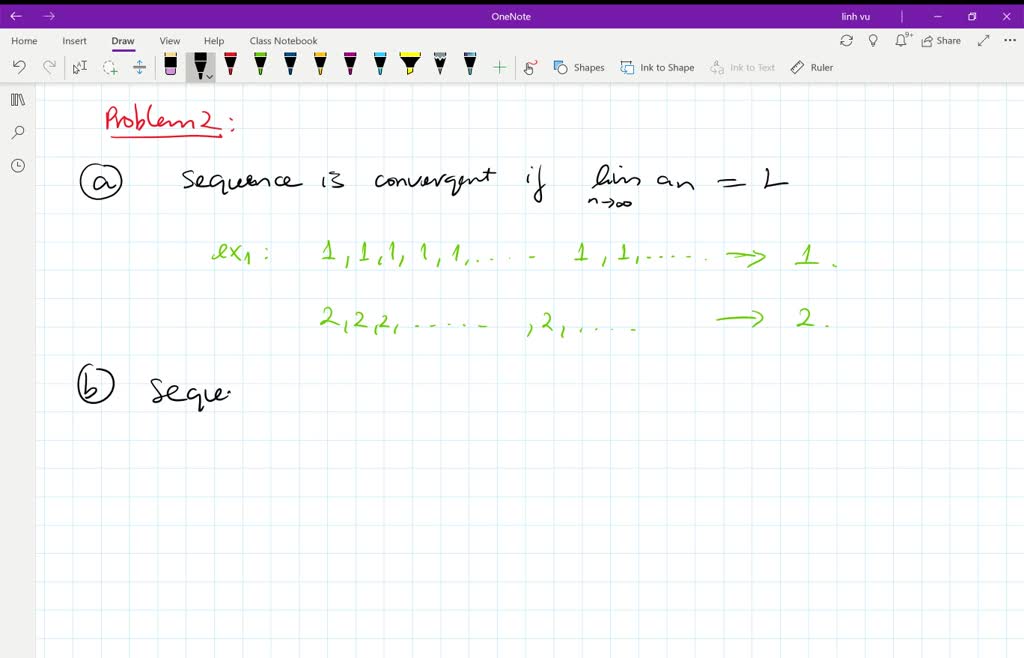 OneNote
linh vu
Home Insert Draw View Help Class Notebook
9+ Share
Shapes Ink to Shape Ink to Text Ruler
Problem 2:
(a) Sequence is convergent if lim n→∞ an = L
ex1: 1, 1, 1, 1, 1, ..... 1, 1, ...... → 1.
2, 2, 2, ...... , 2, ..... → 2.
(b) Seque